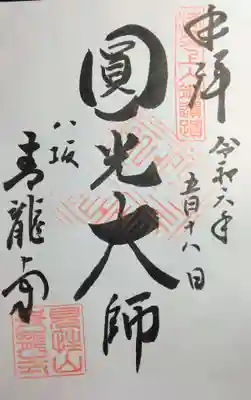 奉拝
令和六年
五月十八日
圓光大師
八坂
青龍寺